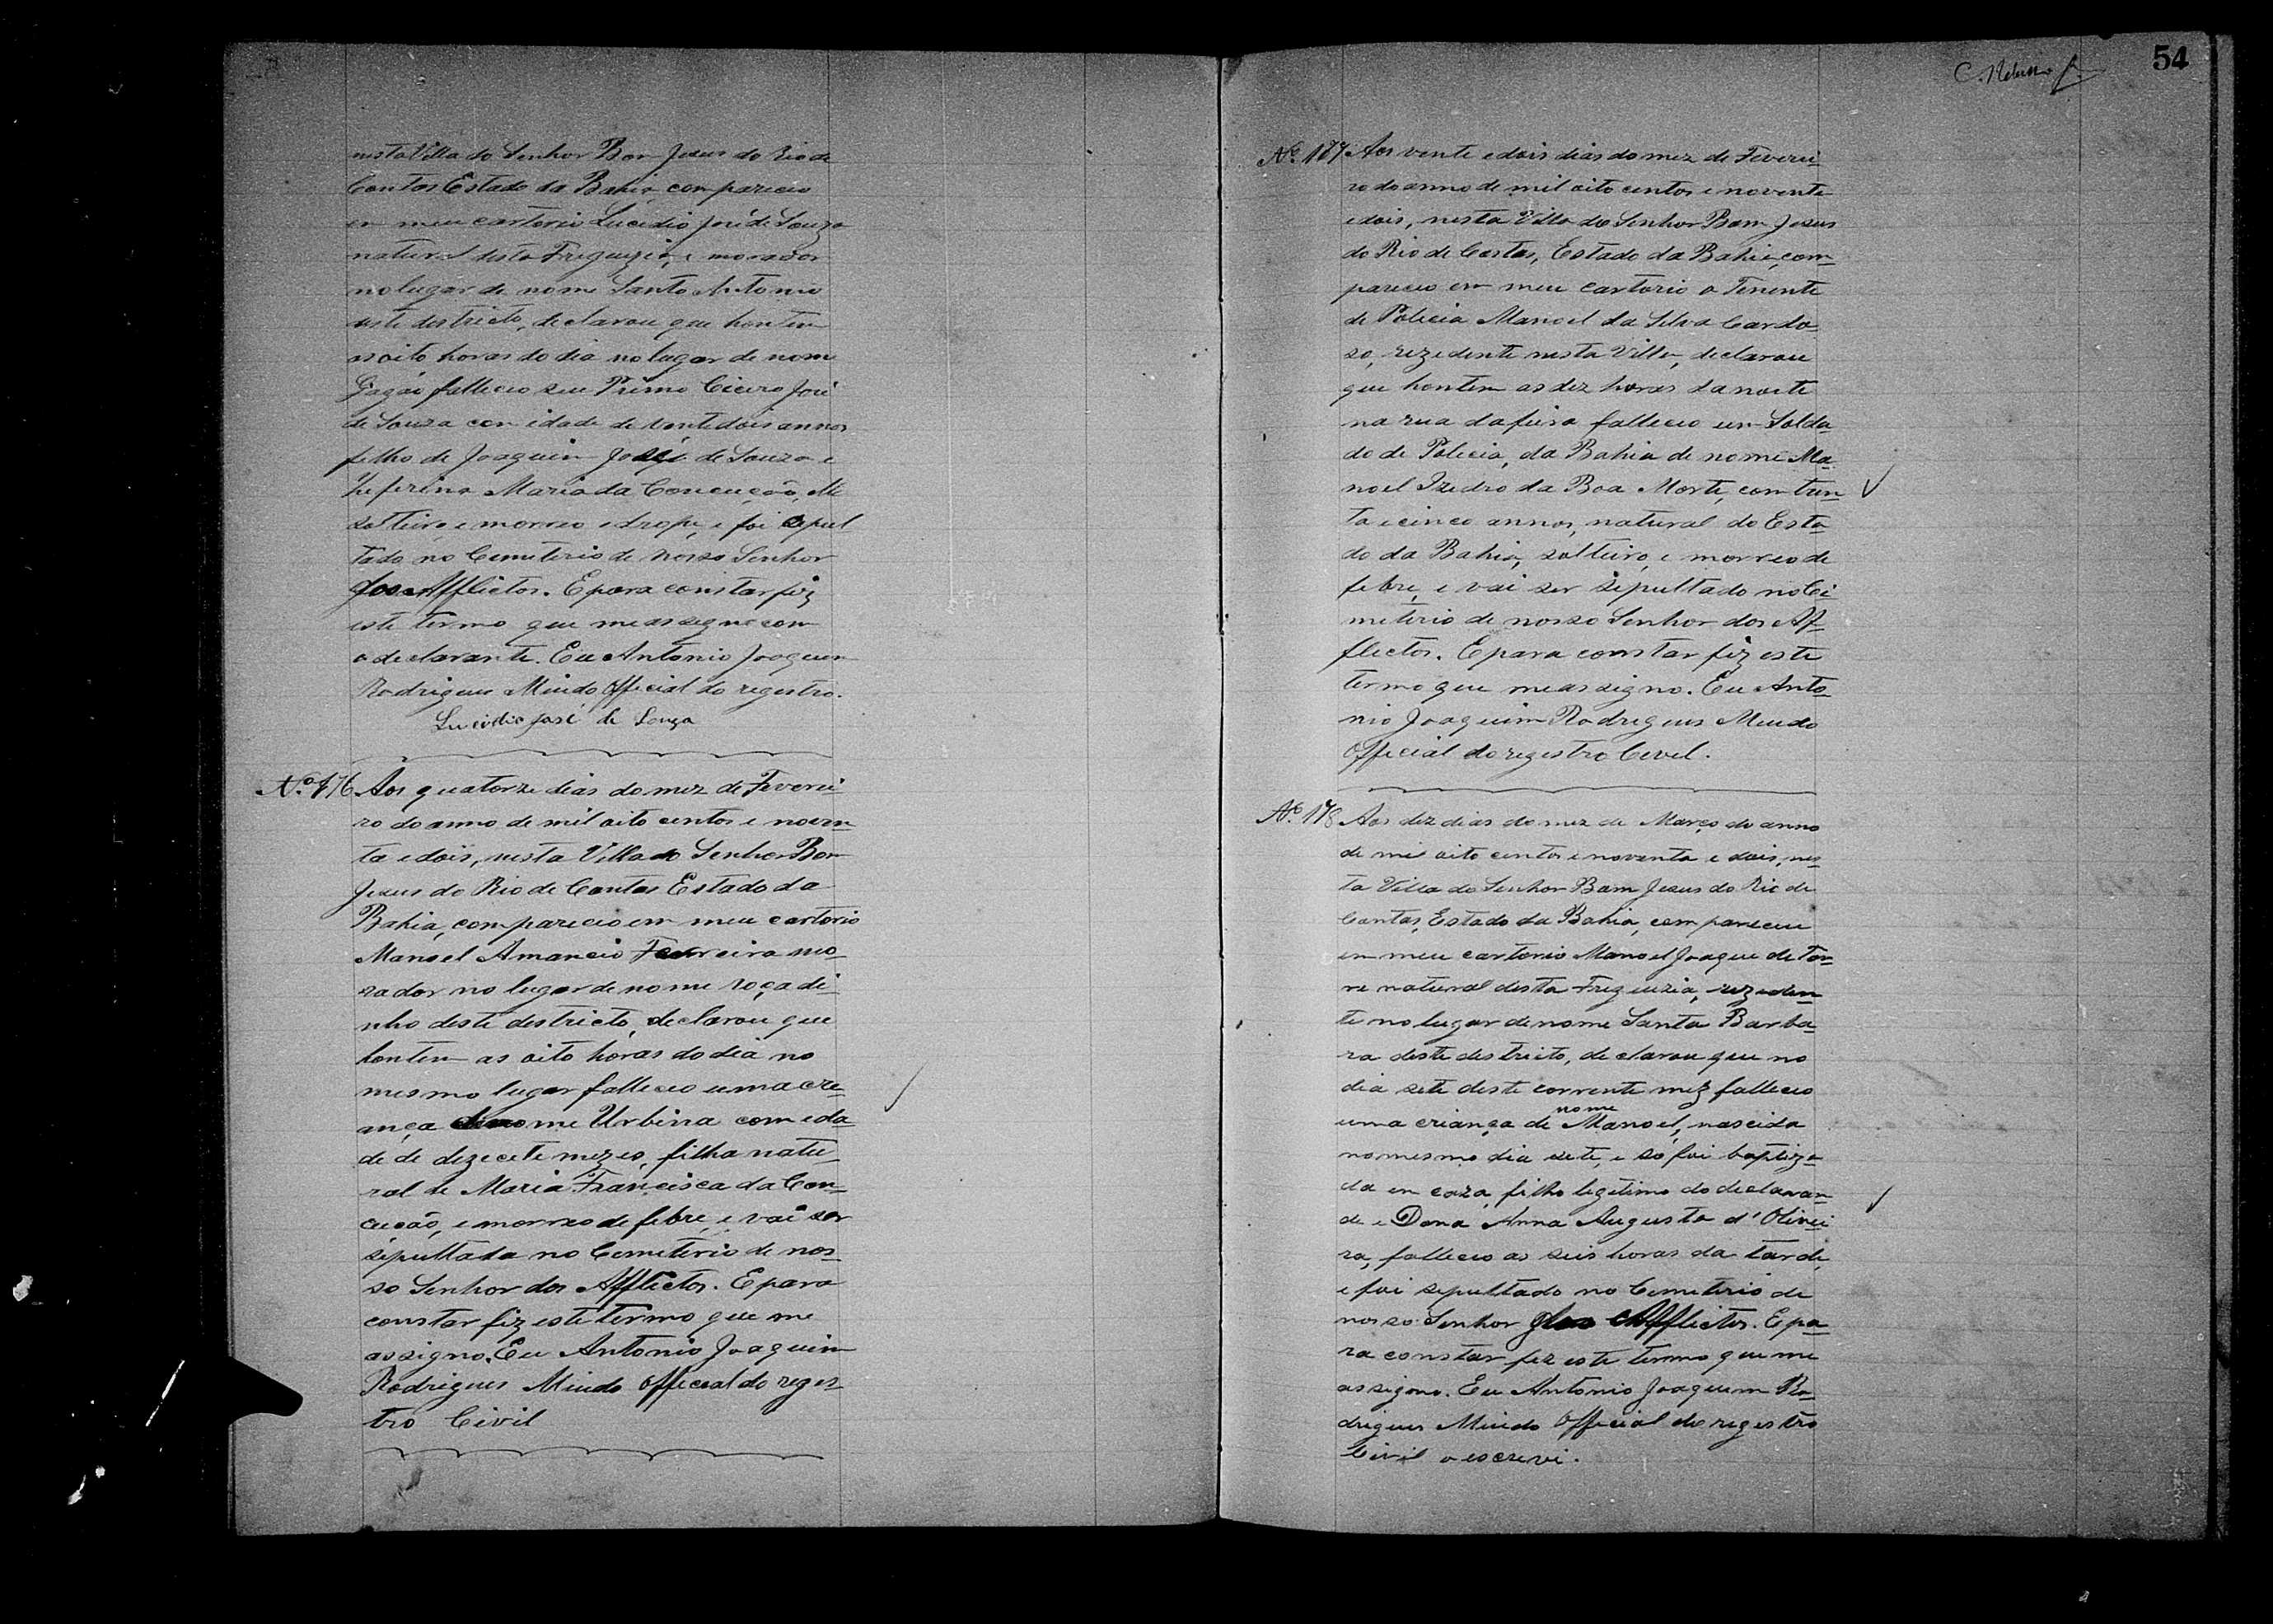 nesta Villa do Senhor Bom Jesus do Rio de
Contas Estado da Bahia, compareceo
em meu cartorio Lucidio José de Souza
natural desta Freguezia, e morador
no lugar de nome Santo Antonio
deste destricto, declarou que hontem
as oito horas do dia no lugar de nome
falleceo seu Primo Cicero José
de Souza com idade de vente dois annos
filho de Joaquim José de Souza e
Zeferina Maria da Conceição,
solteiro e morreo e foi sepul
tado no Cemeterio de nosso Senhor
dos Afflictos. E para constar fiz
este termo que me assigno com
o declarante. Eu Antonio Joaquim
Rodrigues Miudo Official do registro.
Lucidio José de Souza
No. 176 Aos quatorze dias do mez de Feverei
ro do anno de mil oito centos e noven
ta e dois, nesta Villa do Senhor Bom
Jesus do Rio de Contas Estado da
Bahia, compareceo em meu cartorio
Manoel Amancio Ferreira mo
rador no lugar de nome roçadi
nho deste destricto, declarou que
hontem as oito horas do dia no
mesmo lugar falleceo uma cre
ança de nome Urbina com eda
de de dezecete mezes, filha natu
ral de Maria Francisca da Con
ceição, e morreo de febre, e vai ser
sepultada no Cemeterio de nos
so Senhor dos Afflictos. E para
constar fiz este termo que me
assigno. Eu Antonio Joaquim
Rodrigues Miudo Official do regis
tro Civil
54
No. 177 Aos vente e dois dias do mez de Feverei
ro do anno de mil oito centos e noventa
e dois, nesta Villa do Senhor Bom Jesus
do Rio de Contas, Estado da Bahia, com
pareceo em meu cartorio o Tenente
de Policia Manoel da Silva Cardo
so, rezedente nesta Villa, declarou
que hontem as dez horas da noite
na rua da feira falleceo um Solda
do de Policia, da Bahia de nome Ma
noel Izedro da Boa Morte, com trin
ta e cinco annos, natural do Esta
do da Bahia, solteiro, e morreo de
febre, e vai ser sepultado no Ce
meterio de nosso Senhor dos Af
flictos. E para constar fiz este
termo que me assigno. Eu Anto
nio Joaquim Rodrigues Miudo
Official do registro Civel.
No. 178 Aos dez dias do mez de Março do anno
de mil oito centos e noventa e dois, nes
ta Villa do Senhor Bom Jesus do Rio de
Contas, Estado da Bahia, compareceu
em meu cartorio Manoel Joaque de Tor
re natural desta Freguezia, rezeden
te no lugar de nome Santa Barba
ra deste destricto, declarou que no
dia sete deste corrente mez falleceo
uma criança de nome Manoel, nascida
no mesmo dia sete, e só foi baptiza
da em caza, filho legitimo do declaran
de e Dona Anna Augusta d'Olivei
ra, falleceo as seis horas da tarde,
e foi sepultado no Cemeterio de
nosso Senhor dos Afflictos. E pa
ra constar fiz este termo que me
assigno. Eu Antonio Joaquim Ro
drigues Miudo Official do registro
Civil o escrevi.